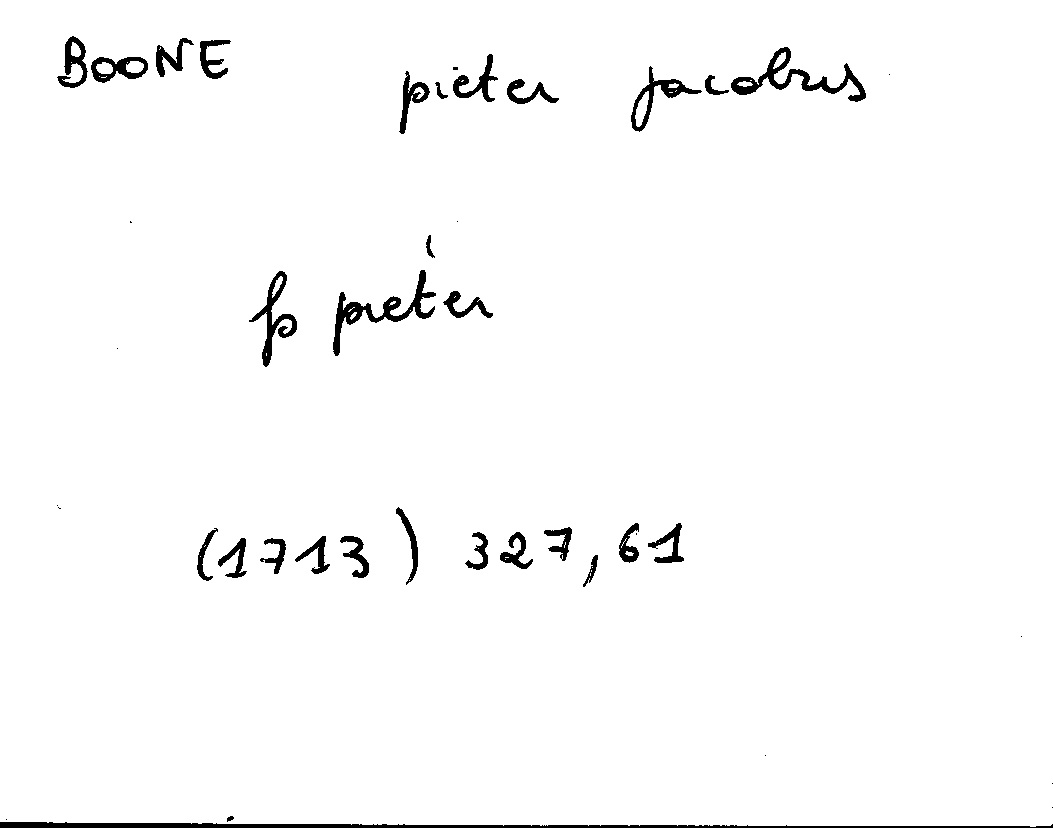 BOONE pieter jacobus
fs pieter
(1713) 327,61